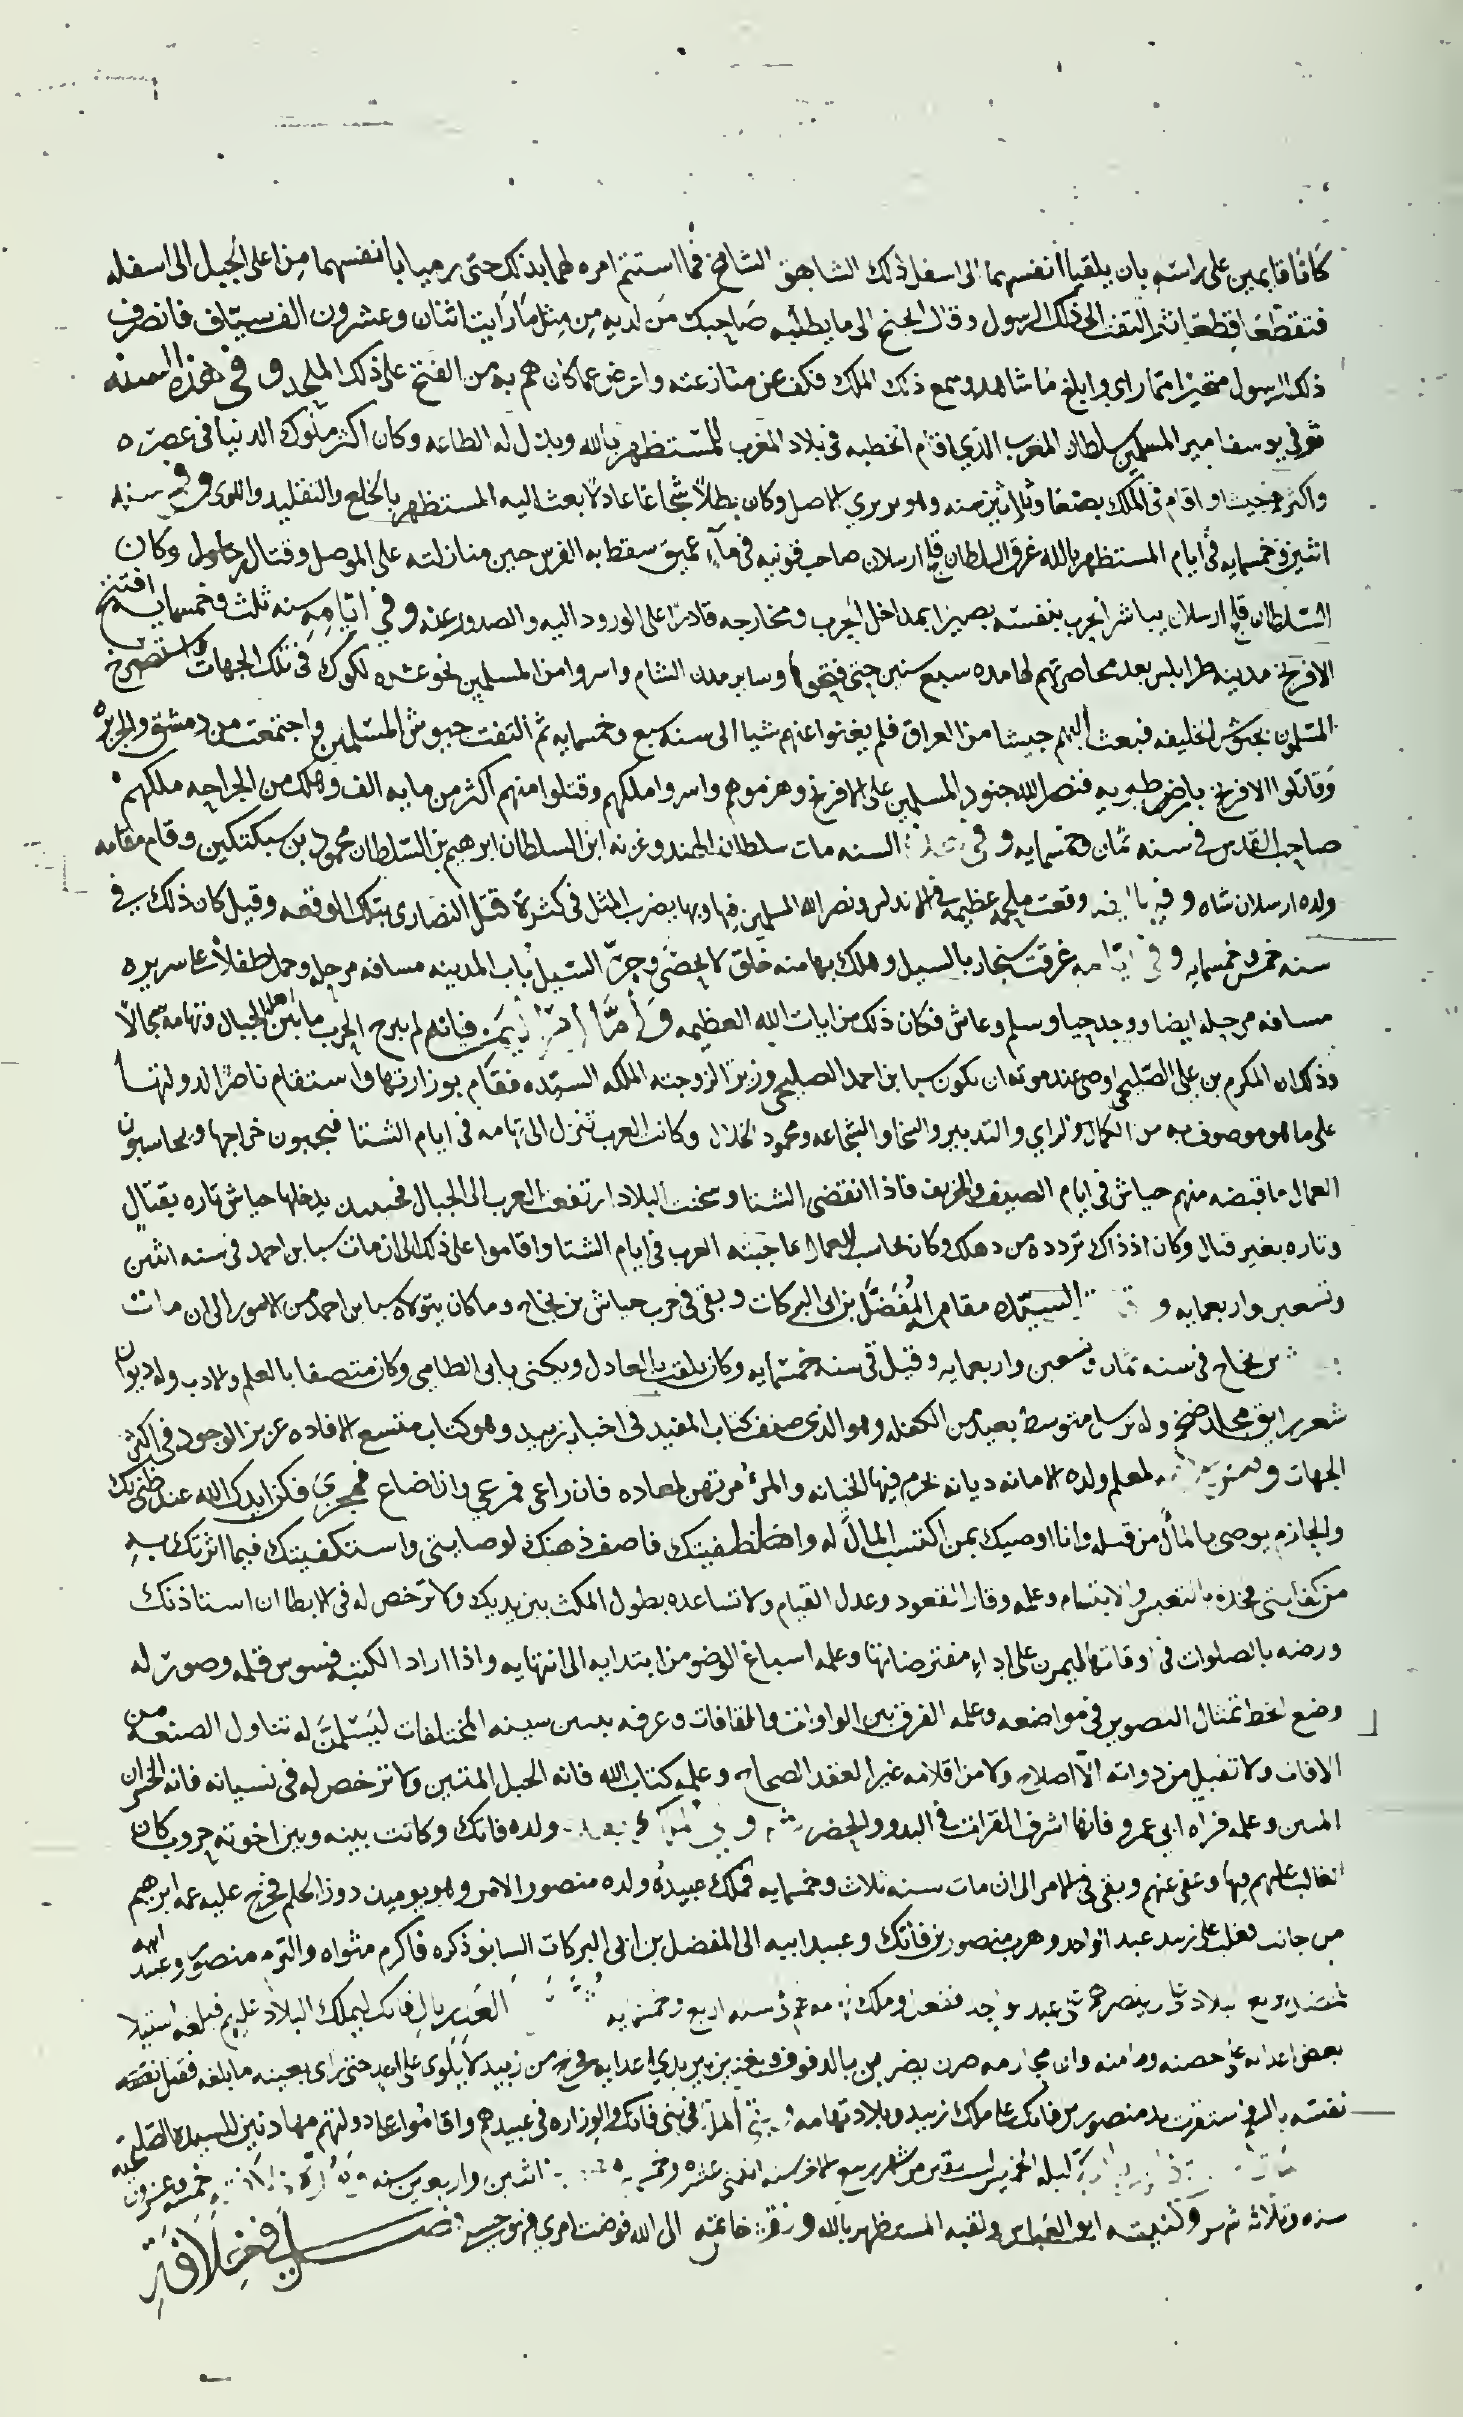 كانا قايمين على راسه بان يلقيا انفسهما الى اسفل ذلك الشاهق الشامخ فما استتم امره لهما بذلك حتى رميا بانفسهما من اعلى الجبل الى اسفله
فتقطعا قطعا ثم التفت الى ذلك الرسول وقال احتج الى ما يطلبه صاحبك من لديه من مثل ما رايت اثنان وعشرون الف سياف فانصرف
ذلك الرسول متحيرا مما راى وابلغ ما شاهد وسمع ذلك الملك فكف عن منازعته واعرض عما كان هم به من الفتح على ذلك الملحد وفي هذه السنه
توفي يوسف امير المسلمين سلطان المغرب الذي اقام الخطبه في بلاد المغرب للمستظهر بالله وبذل له الطاعه وكان اكثر ملوك الدنيا في عصره
واكثرهم جيشا واقام في الملك بضعا وثلاثين سنه وهو بربري الاصل وكان بطلا شجاعا عادلا بعث اليه المستظهر بالخلع والتقليد واللوى وفي سنه
اثنين وخمسمايه في ايام المستظهر بالله غرق السلطان قلج ارسلان صاحب قونيه في ماء عميق سقط به الفرس حين منازلته على الموصل وقتال جاولى وكان
السلطان قلج ارسلان يباشر الحرب بنفسه بصيرا بمداخل الحرب ومخارجه قادرا على الورود اليه والصدور عنه وفي ايامه سنه ثلث وخمسمايه افتتح
الافرنج مدينه طرابلس بعد محاصرتهم لها مده سبع سنين حتى فتحوها وساير مدن الشام واسروا من المسلمين نحو عشره لكوك في تلك الجهات واستصرخ
المسلمون بجيوش الخليفه فبعث اليهم جيشا من العراق فلم يغنوا عنهم شيا الى سنه سبع وخمسمايه ثم التفت جيوش المسلمين واجتمعت من دمشق والجزيره
وقاتلوا الافرنج بارض طبريه فنصر الله جنود المسلمين على الافرنج وهزموهم واسروا ملكهم وقتلوا منهم اكثر من مايه الف وهلك من الجراحه ملكهم
صاحب القدس في سنه ثمان وخمسمايه وفي هذه السنه مات سلطان الهند وغزنه ابن السلطان ابرهيم بن السلطان محمود بن سبكتكين وقام مقامه
ولده ارسلان شاه وفيها ايضا وقعت ملحمه عظيمه في الاندلس ونصر الله المسلمين فيها وبها يضرب المثل في كثرة قتل النصارى بتلك الوقعه وقيل كان ذلك في
سنه خمس وخمسمايه وفي ايامه غرقت سنجار بالسيل وهلك بها منه خلق لا يحصى وجر السيل باب المدينه مسافه مرحله وحمل طفلا على سريره
مسافه مرحله ايضا ووجد حيا وسلم وعاش فكان ذلك من ايات الله العظيمه واما اليمن فانه لم يبرح الحرب ما بين اهل الجبال وتهامه سجالا
وذلك ان المكرم بن علي الصليحي اوصى عند موته ان يكون سبا بن احمد الصليحي وزيرا لزوجته الملكه السيده فقام بوزارتها واستقام ناصرا لدولتها
على ما هو موصوف به من الكمال والراي والتدبير والسخا والشجاعه ومحمود الخلال وكانت العرب تنزل الى تهامه في ايام الشتا فيجبون خراجها ويحاسبون
العمال ما قبضه منهم جياش في ايام الصيف والخريف فاذا انقضى الشتا وسخنت البلاد ارتفعت العرب الى الجبال فحينئذ يدخلها جياش تاره بقتال
وتاره بغير قتال وكان اذ ذاك تردده من دهلك وكان يحاسب العمال بما جبته العرب في ايام الشتا واقاموا على ذلك الى ان مات سبا بن احمد في سنه اثنين
وتسعين واربعمايه و السيده مقامه المفضل بن ابي البركات وبقي في حرب جياش بن نجاح وما كان يتولاه سبا بن احمد من الامور الى ان مات
بن نجاح في سنه ثمان وتسعين واربعمايه وقيل في سنه خمسمايه وكان يلقب بالعادل ويكنى بابي الطامي وكان متصفا بالعلم والادب وله ديوان
شعر رايق مجلد ضخم وله ترسل متوسط بعيد من الكلفه وهو الذي صنف كتاب المفيد في اخبار زبيد وهو كتاب متسع الافاده عزيز الوجود في اكثر
الجهات لمعلم ولده الامانه ديانه تحرم فيها الخيانه والمرء مرتهن لمعاده فان راعى فرعي وان اضاع فجزي فكن ايدك الله عند ظني بك
والحازم يوصي بالمال من قبله وانا اوصيك بمن اكتسب المال له واصطفيتك فاصف ذهنك لوصايتي واستكفيتك فيما اثرتك به
من كفايتي فخذه بالتعبس والابتسام وعلمه وقار القعود وعدل القيام ولا تساعده بطول المكث بين يديك ولا ترخص له في الابطا ان استاذنك
ورضه بالصلوات في اوقاتها ليمرن على اداء مفترضاتها وعلمه اسباغ الوضو من ابتدايه الى انتهايه واذا اراد الكتبه فسوس قلمه وصور له
وضع الخط تمثال التصوير في مواضعه وعلمه الفرق بين الواوات والقافات وعرفه سينه المختلفات ليسلمن له تناول الصنعه من
الافات ولا تقبل من دواته الا اصلاح ولا من اقلامه غير العقد الصحاح وعلمه كتاب الله فانه الحبل المتين ولا ترخص له في نسيانه فانه الخسران
المبين وعلمه قراه ابي عمرو فانها اشرف القرات في البدو والحضر ولده فاتك وكانت بينه وبين اخوته حروب كان
الغالب عليهم فيها وعفى عنهم وبقي في الامر الى ان مات سنه ثلاث وخمسمايه فملك عبيده ولده منصور الامر وهو يوميذ دون الحلم فخرج عليه عمه ابرهيم
من جانب فغلب على زبيد عبد الواحد وهرب منصور بن فاتك وعبيد ابيه الى المفضل بن ابي البركات السابق ذكره فاكرم مثواه والتزم منصور وعبيد ابيه
للمفضل بربع البلاد ان ينصرهم على عبد الواحد ففعل وملك سنه اربع وخمسمايه الغدر بال فاتك ليملك البلاد عليهم فبلغه استيلا
بعض اعدايه على حصنه ومامنه وان محارمه صرن يضربن بالدفوف ويغنين بين يدي اعدايه فخرج من زبيد لا يلوي على احد حتى راى بعينه ما بلغه فقتل نفسه
نفسه بالسم واستقرت يد منصور بن فاتك على ملك زبيد وبلاد تهامه في بني فاتك والوزاره في عبيدهم واقاموا على دولتهم مهادنين للسيده الصليحيه
ليله الخميس لست بقين من شهر ربيع الاخر سنه اثنتي عشره وخمسمايه اثنين واربعين سنه خمسه وعشرون
سنه وثلاثه شهر وكنيته ابو العباس ولقبه المستظهر بالله ونقش خاتمه الى الله فوضت امري فهو حسبي فصل في خلافة